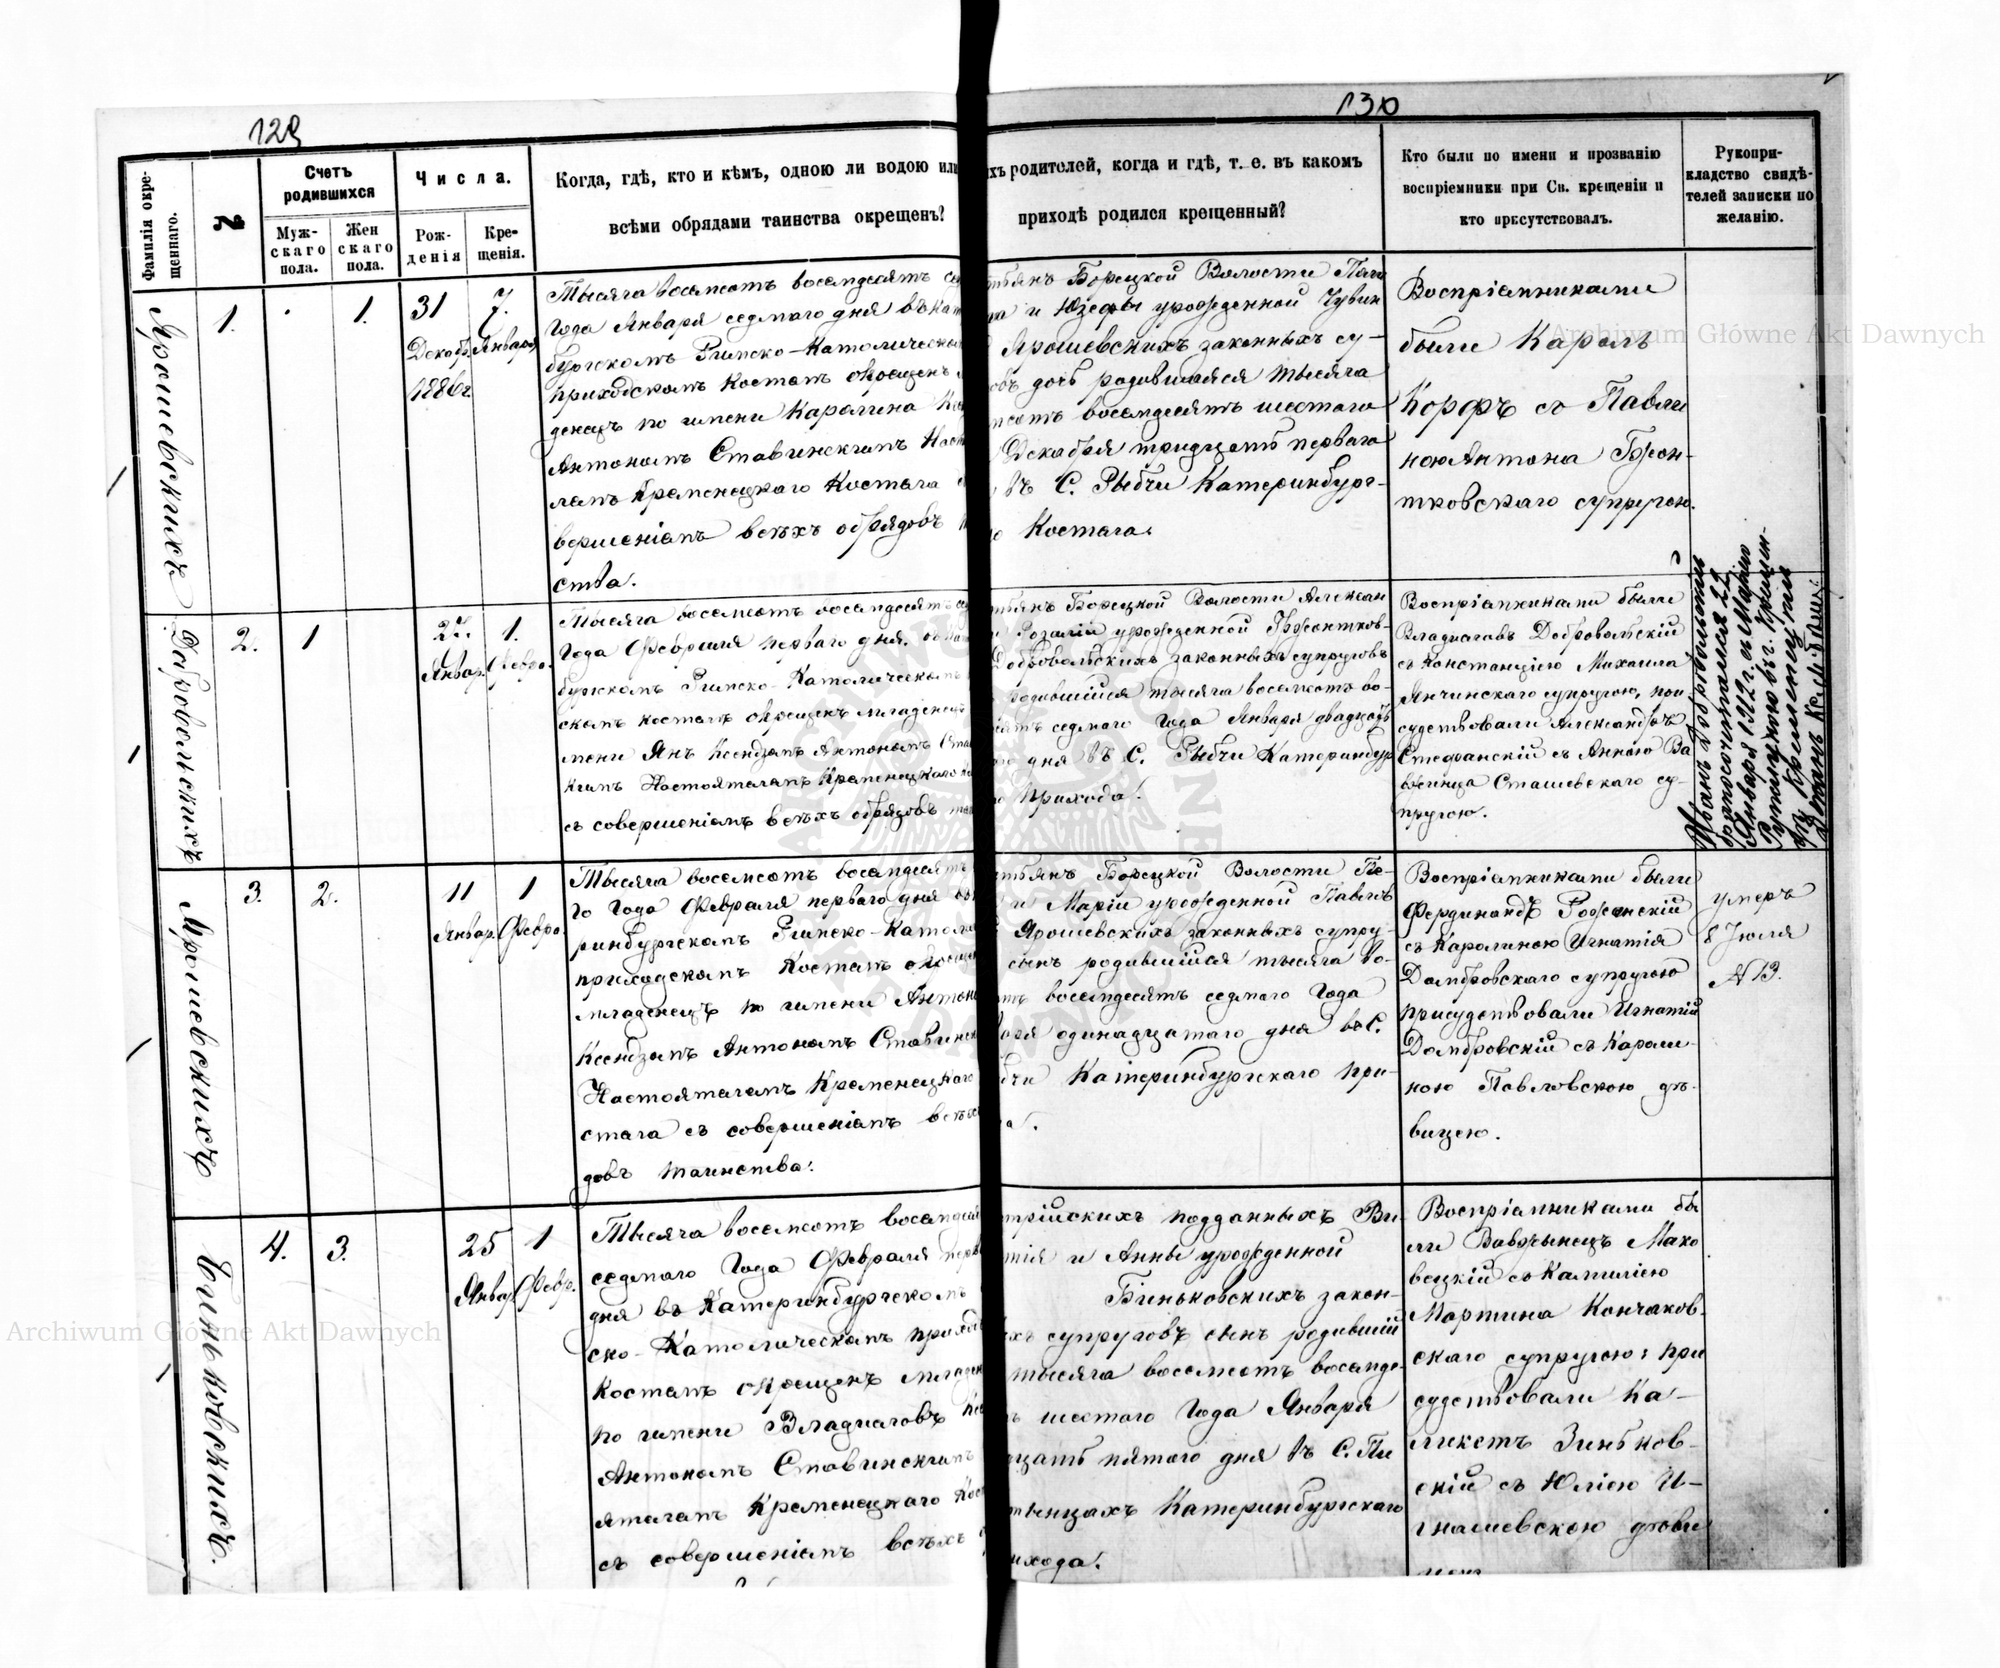 129
130
Фамилія окре-
щеннаго.
№
Счетъ
родившихся
Муж-
скаго
пола.
Жен
скаго
пола.
Числа.
Рож-
денія
Кре-
щенія.
Когда, гдѣ, кто и кѣмъ, одною ли водою или
всѣми обрядами таинства окрещенъ?
ихъ родителей, когда и гдѣ, т. е. въ какомъ
приходѣ родился крещенный?
Кто были по имени и прозванію
воспріемники при Св. крещеніи и
кто присутствовалъ.
Рукопри-
кладство свидѣ-
телей записки по
желанію.
Ярошевскихъ
1.
1.
31
Декабр.
1886г.
7.
Января
Тысяча восемсотъ восемдесятъ се
Года Января седмаго дня въ Кат
бургскомъ Римско-Католическо
приходскомъ Костелѣ окрещенъ
денецъ по имени Каролина
Антономъ Ставинскимъ Наст
лемъ Кременецкаго Костела
вершеніемъ всѣхъ обрядовъ
ства.
тьянъ Борецкой Волости
и Юзефы урожденной
Ярошевскихъ законныхъ су-
овъ дочь родившаяся тысяча
мсотъ восемдесятъ шестаго
Декабря тридцать перваго
въ С. Рыбчи Катеринбург-
о Костела.
Воспріемниками
были Кароль
Корфъ съ Павли
ною Антона Бжон-
тковскаго супругою.
Добровольскихъ
2.
1
27.
Январ.
1.
Февра.
Тысяча восемсотъ восемдесятъ се
Года Февраля перваго дня въ Кат
бургскомъ Римско-Католическомъ
скомъ костелѣ окрещенъ младенецъ
мени Янъ Ксендзомъ Антономъ Ста
кимъ Настоятелемъ Кременецкаго Ко
съ совершеніемъ всѣхъ обрядовъ та
тьянъ Борецкой Волости Алексан
и Розаліи урожденной Бжонтков-
Добровольскихъ законныхъ супруговъ
родившійся тысяча восемсотъ во-
сятъ седмаго Года Января двадцать
дня въ С. Рыбчи Катеринбур
Прихода.
Воспріемниками были
Владиславъ Добровольскій
съ Констанціею Михаила
Янчинскаго супругою, при
судствовали Александръ
Стефанскій съ Анною Ва
вжинца Сташевскаго су-
пругою.
Иванъ Добровольскій
бракосочитался 22
Января 1912 г. съ Маріею
Ярошевскихъ
3.
2.
11
Январ.
1
Февра.
Тысяча восемсотъ восемдесятъ
го Года Февраля перваго дня въ
ринбургскомъ Римско-Католи
приходскомъ Костелѣ окрещен
младенецъ по имени Антон
Ксендзомъ Антономъ Ставинск
Настоятелемъ Кременецкаго
стела съ совершеніемъ всѣх
довъ таинства.
тьянъ Борецкой Волости Пе-
и Маріи урожденной Павлюв
Ярошевскихъ законныхъ супру-
сынъ родившійся тысяча во-
тъ восемдесятъ седмаго Года
варя одинадцатаго дня въ С.
бчи Катеринбургскаго при-
а.
Воспріемниками были
Фердинандъ Рожанскій
съ Каролиною Игнатія
Домбровскаго супругою
присудствовали Игнатій
Домбровскій съ Кароли-
ною Павловскою дѣ-
вицею.
умеръ
8 Іюля
№ 13.
Биньковскихъ.
4.
3.
25
Январ.
1
Февр.
Тысяча восемсотъ восемдеся
седмаго Года Февраля перв
дня въ Катеринбургскомъ
ско-Католическомъ приход
Костелѣ окрещенъ младен
по имени Владиславъ Ксе
Антономъ Ставинскимъ
ятелемъ Кременецкаго Кос
съ совершеніемъ всѣхъ
трійскихъ подданныхъ Ви-
тія и Анны урожденной
Биньковскихъ закон-
ыхъ супруговъ сынъ родившій
тысяча восемсотъ восемде-
ъ шестаго Года Января
дцать пятаго дня въ С. Пи
тынцахъ Катеринбургскаго
ихода.
Воспріемниками бы
ли Вавжынецъ Мако
вецкій съ Камиліею
Мартина Кончаков-
скаго супругою; при
судствовали Ка-
ликстъ Зиньков-
скій съ Юліею И-
гнашевскою дѣви
Archiwum Główne Akt Dawnych
Archiwum Główne Akt Dawnych